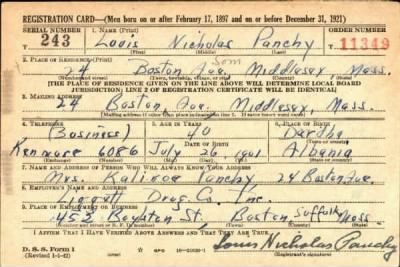 REGISTRATION CARD—(Men born on or after February 17, 1897 and on or before December 31, 1921)
SERIAL NUMBER 1. NAME (Print) ORDER NUMBER
243 Louis Nicholas Panchy 11349
(First) (Middle) (Last)
2. PLACE OF RESIDENCE (Print) Som
24 Boston Ave. Middlesex, Mass.
(Number and street) (Town, township, village, or city) (County) (State)
[THE PLACE OF RESIDENCE GIVEN ON THE LINE ABOVE WILL DETERMINE LOCAL BOARD
JURISDICTION; LINE 2 OF REGISTRATION CERTIFICATE WILL BE IDENTICAL]
3. MAILING ADDRESS
24 Boston, Ave. Middlesex, Mass.
[Mailing address if other than place indicated on line 2. If same insert word same]
4. TELEPHONE 5. AGE IN YEARS 6. PLACE OF BIRTH
(Business) 40 Dardha
DATE OF BIRTH (Town or county)
Kenmore 6086 July 26, 1901 Albania
(Exchange) (Number) (Mo.) (Day) (Yr.) (State or country)
7. NAME AND ADDRESS OF PERSON WHO WILL ALWAYS KNOW YOUR ADDRESS
Mrs. Panchy 24 Boston Ave.
8. EMPLOYER'S NAME AND ADDRESS
Liggett Drug Co. Inc.
9. PLACE OF EMPLOYMENT OR BUSINESS
452 St. Boston, Suffolk Mass.
(Number and street or R. F. D. number) (Town) (County) (State)
I AFFIRM THAT I HAVE VERIFIED ABOVE ANSWERS AND THAT THEY ARE TRUE.
D. S. S. Form 1
(Revised 1-1-42) (over)
Louis Nicholas Panchy
(Registrant's signature)